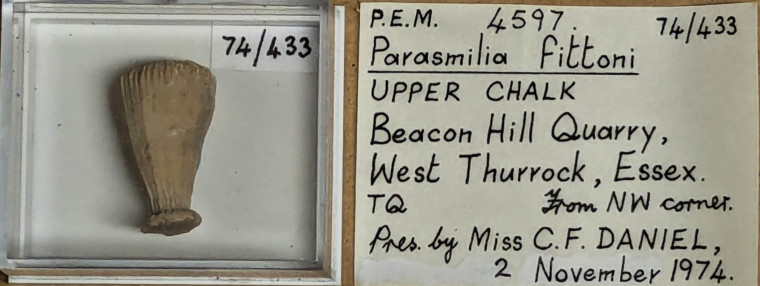 74/433
P.E.M. 4597. 74/433
Parasmilia fittoni
UPPER CHALK
Beacon Hill Quarry,
West Thurrock, Essex.
TQ From NW corner.
Pres. by Miss C.F. DANIEL,
2 November 1974.